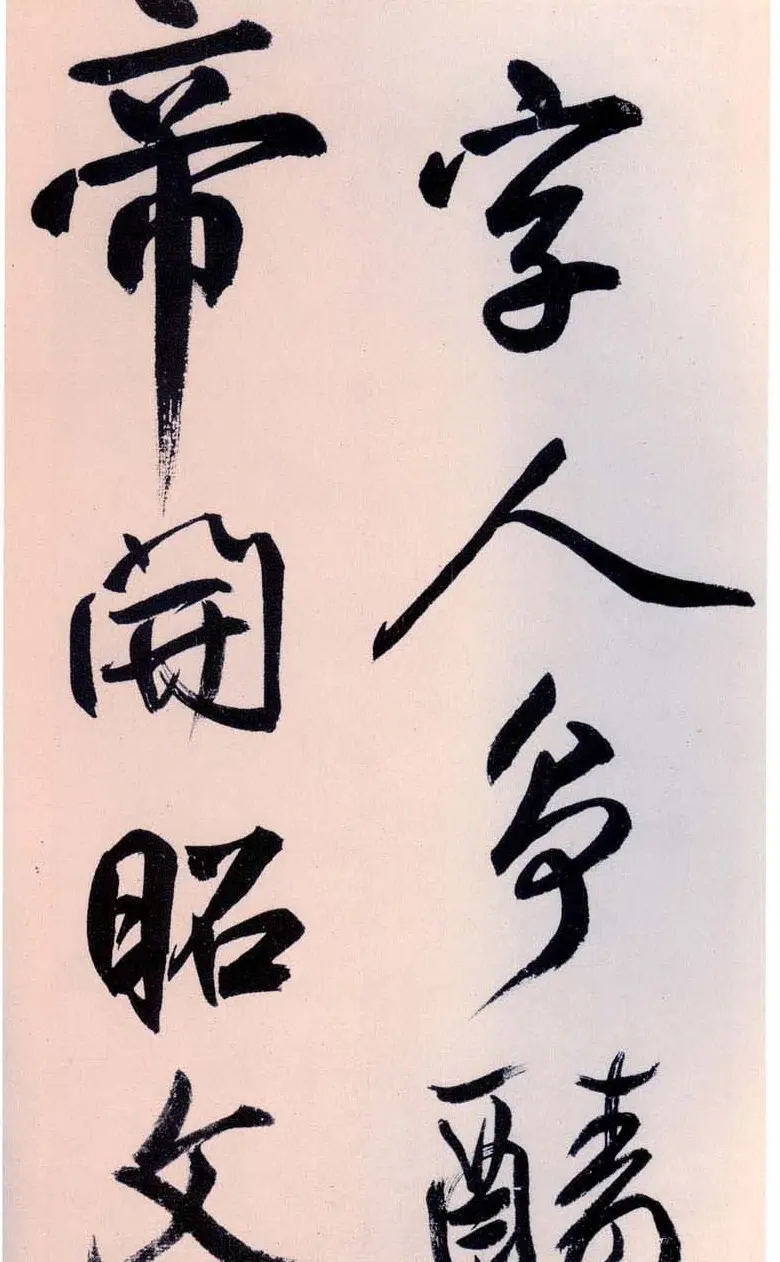 字人争
帝開昭文